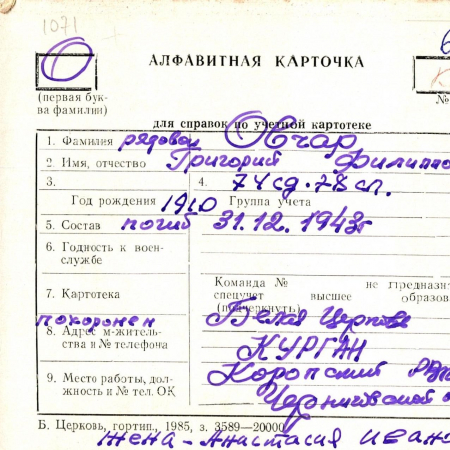 1071
О
АЛФАВИТНАЯ КАРТОЧКА
(первая бук-
ва фамилии)
№
для справок по учетной картотеке
1. Фамилия рядовой Овчар
2. Имя, отчество Григорий Филиппо
3.
4. 74 сд. 78 сп.
Год рождения 1910 Группа учета
5. Состав погиб 31.12.1943г
6. Годность к воен-
службе
Команда № не предназна
7. Картотека спецучет высшее образов
(подчеркнуть)
похоронен Белая Церковь
8. Адрес м-житель-
ства и № телефона
КУРГАН
Коропский
9. Место работы, дол-
жность и № тел. ОК
Черниговской о
Б. Церковь, гортип., 1985, з. 3589—20000
жена - Анастасия Ивано